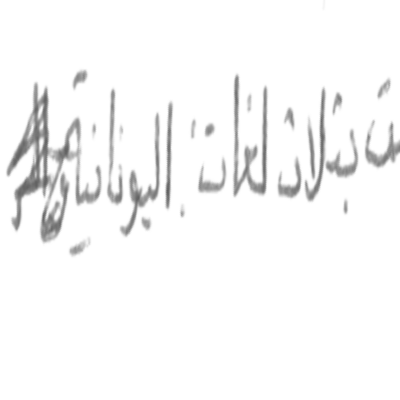 بثلاث لغات: اليونانية